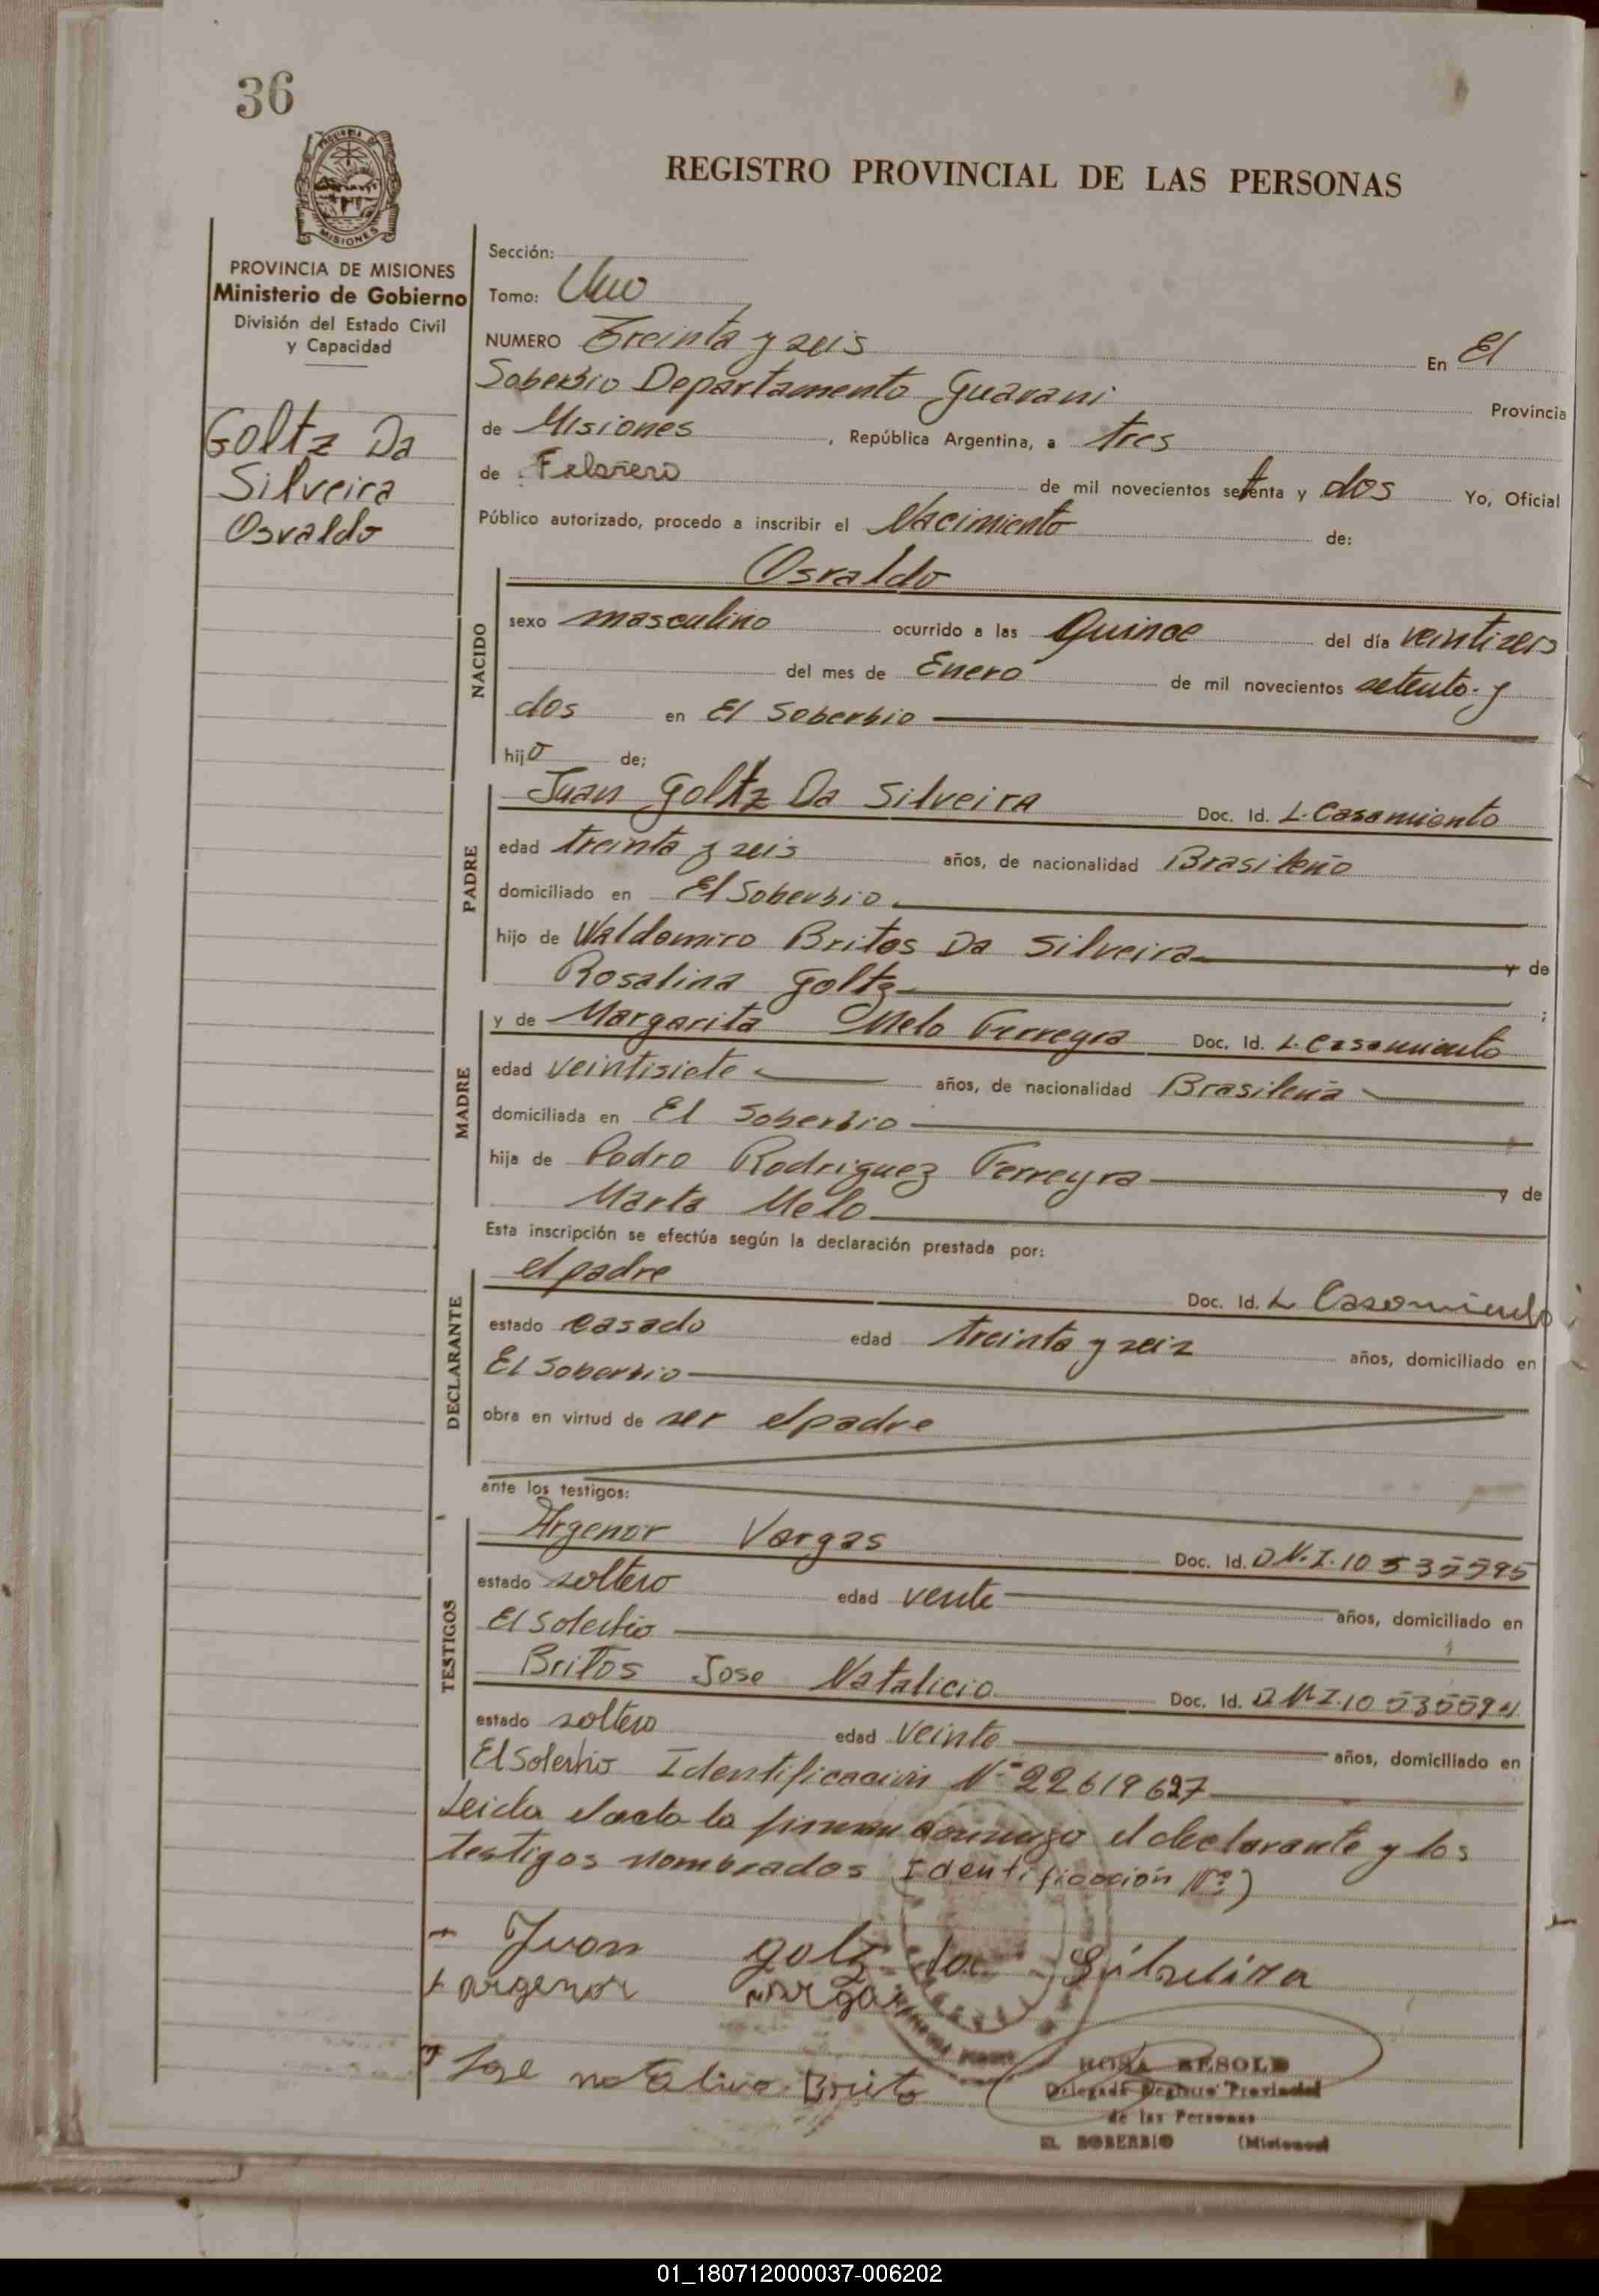 36
REGISTRO PROVINCIAL DE LAS PERSONAS
PROVINCIA DE
MISIONES
PROVINCIA DE MISIONES
Ministerio de Gobierno
División del Estado Civil
y Capacidad
Goltz Da
Silveira
Osvaldo
Sección:
Tomo: Uno
NUMERO Treinta y seis En El
Soberbio Departamento Guarani Provincia
de Misiones, República Argentina, a tres
de Febrero de mil novecientos setenta y dos Yo, Oficial
Público autorizado, procedo a inscribir el Nacimiento de:
NACIDO
Osvaldo
sexo masculino ocurrido a las Quince del día veintiseis
del mes de Enero de mil novecientos setenta y
dos en El Soberbio
hijo de;
PADRE
Juan Goltz Da Silveira Doc. Id. L. Casamiento
edad treinta y seis años, de nacionalidad Brasileño
domiciliado en El Soberbio
hijo de Waldomiro Britos Da Silveira y de
Rosalina Goltz ;
MADRE
y de Margarita Melo Ferreyra Doc. Id. L. Casamiento
edad veintisiete años, de nacionalidad Brasileña
domiciliada en El Soberbio
hija de Pedro Rodriguez Ferreyra y de
Marta Melo
Esta inscripción se efectúa según la declaración prestada por:
DECLARANTE
el padre Doc. Id. L Casamiento
estado casado edad treinta y seis años, domiciliado en
El Soberbio
obra en virtud de ser el padre
ante los testigos:
TESTIGOS
Argenor Vargas Doc. Id. D.N.I. 10 535595
estado soltero edad vente años, domiciliado en
El Soberbio
Britos Jose Natalicio Doc. Id. D.N.I. 10 535594
estado soltero edad veinte años, domiciliado en
El Soberbio Identificación Nº 22619627
Leida el acta la firman conmigo el declarante y los
testigos nombrados (Identificación Nº)
Juan golz da Silveira
argenor vargas
Jose natalicio Brito
ROSA BESOLD
Delegada Registro Provincial
de las Personas
EL SOBERBIO (Misiones)
01_180712000037-006202